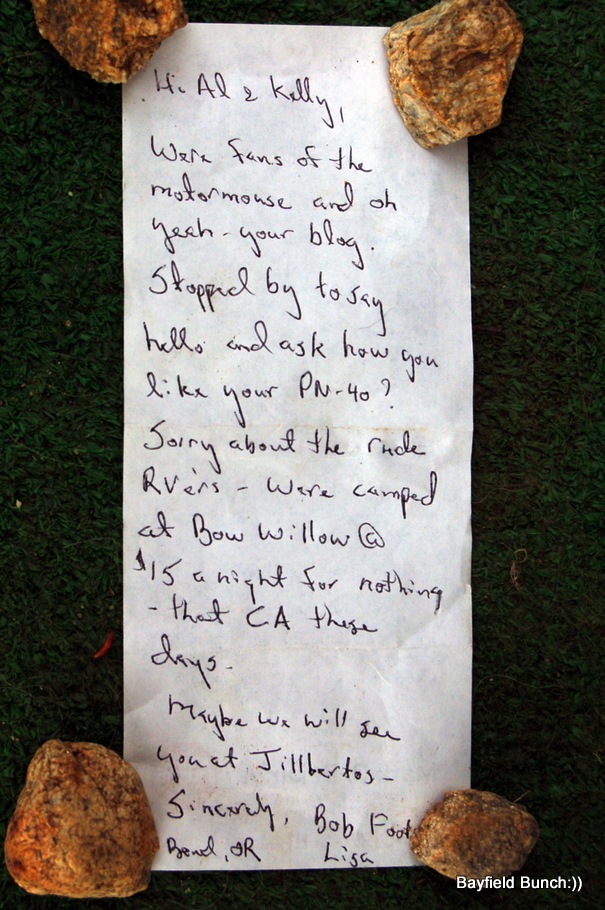 Hi Al & Kelly,
Were fans of the
motormouse and oh
yeah - your blog.
Stopped by to say
hello and ask how you
like your PN-40?
Sorry about the rude
RVers - Were camped
at Bow Willow @
$15 a night for nothing
- that CA these
days -
Maybe we will see
you at Jillbertos -
Sincerely, Bob
Bend, OR Lisa
Bayfield Bunch:))